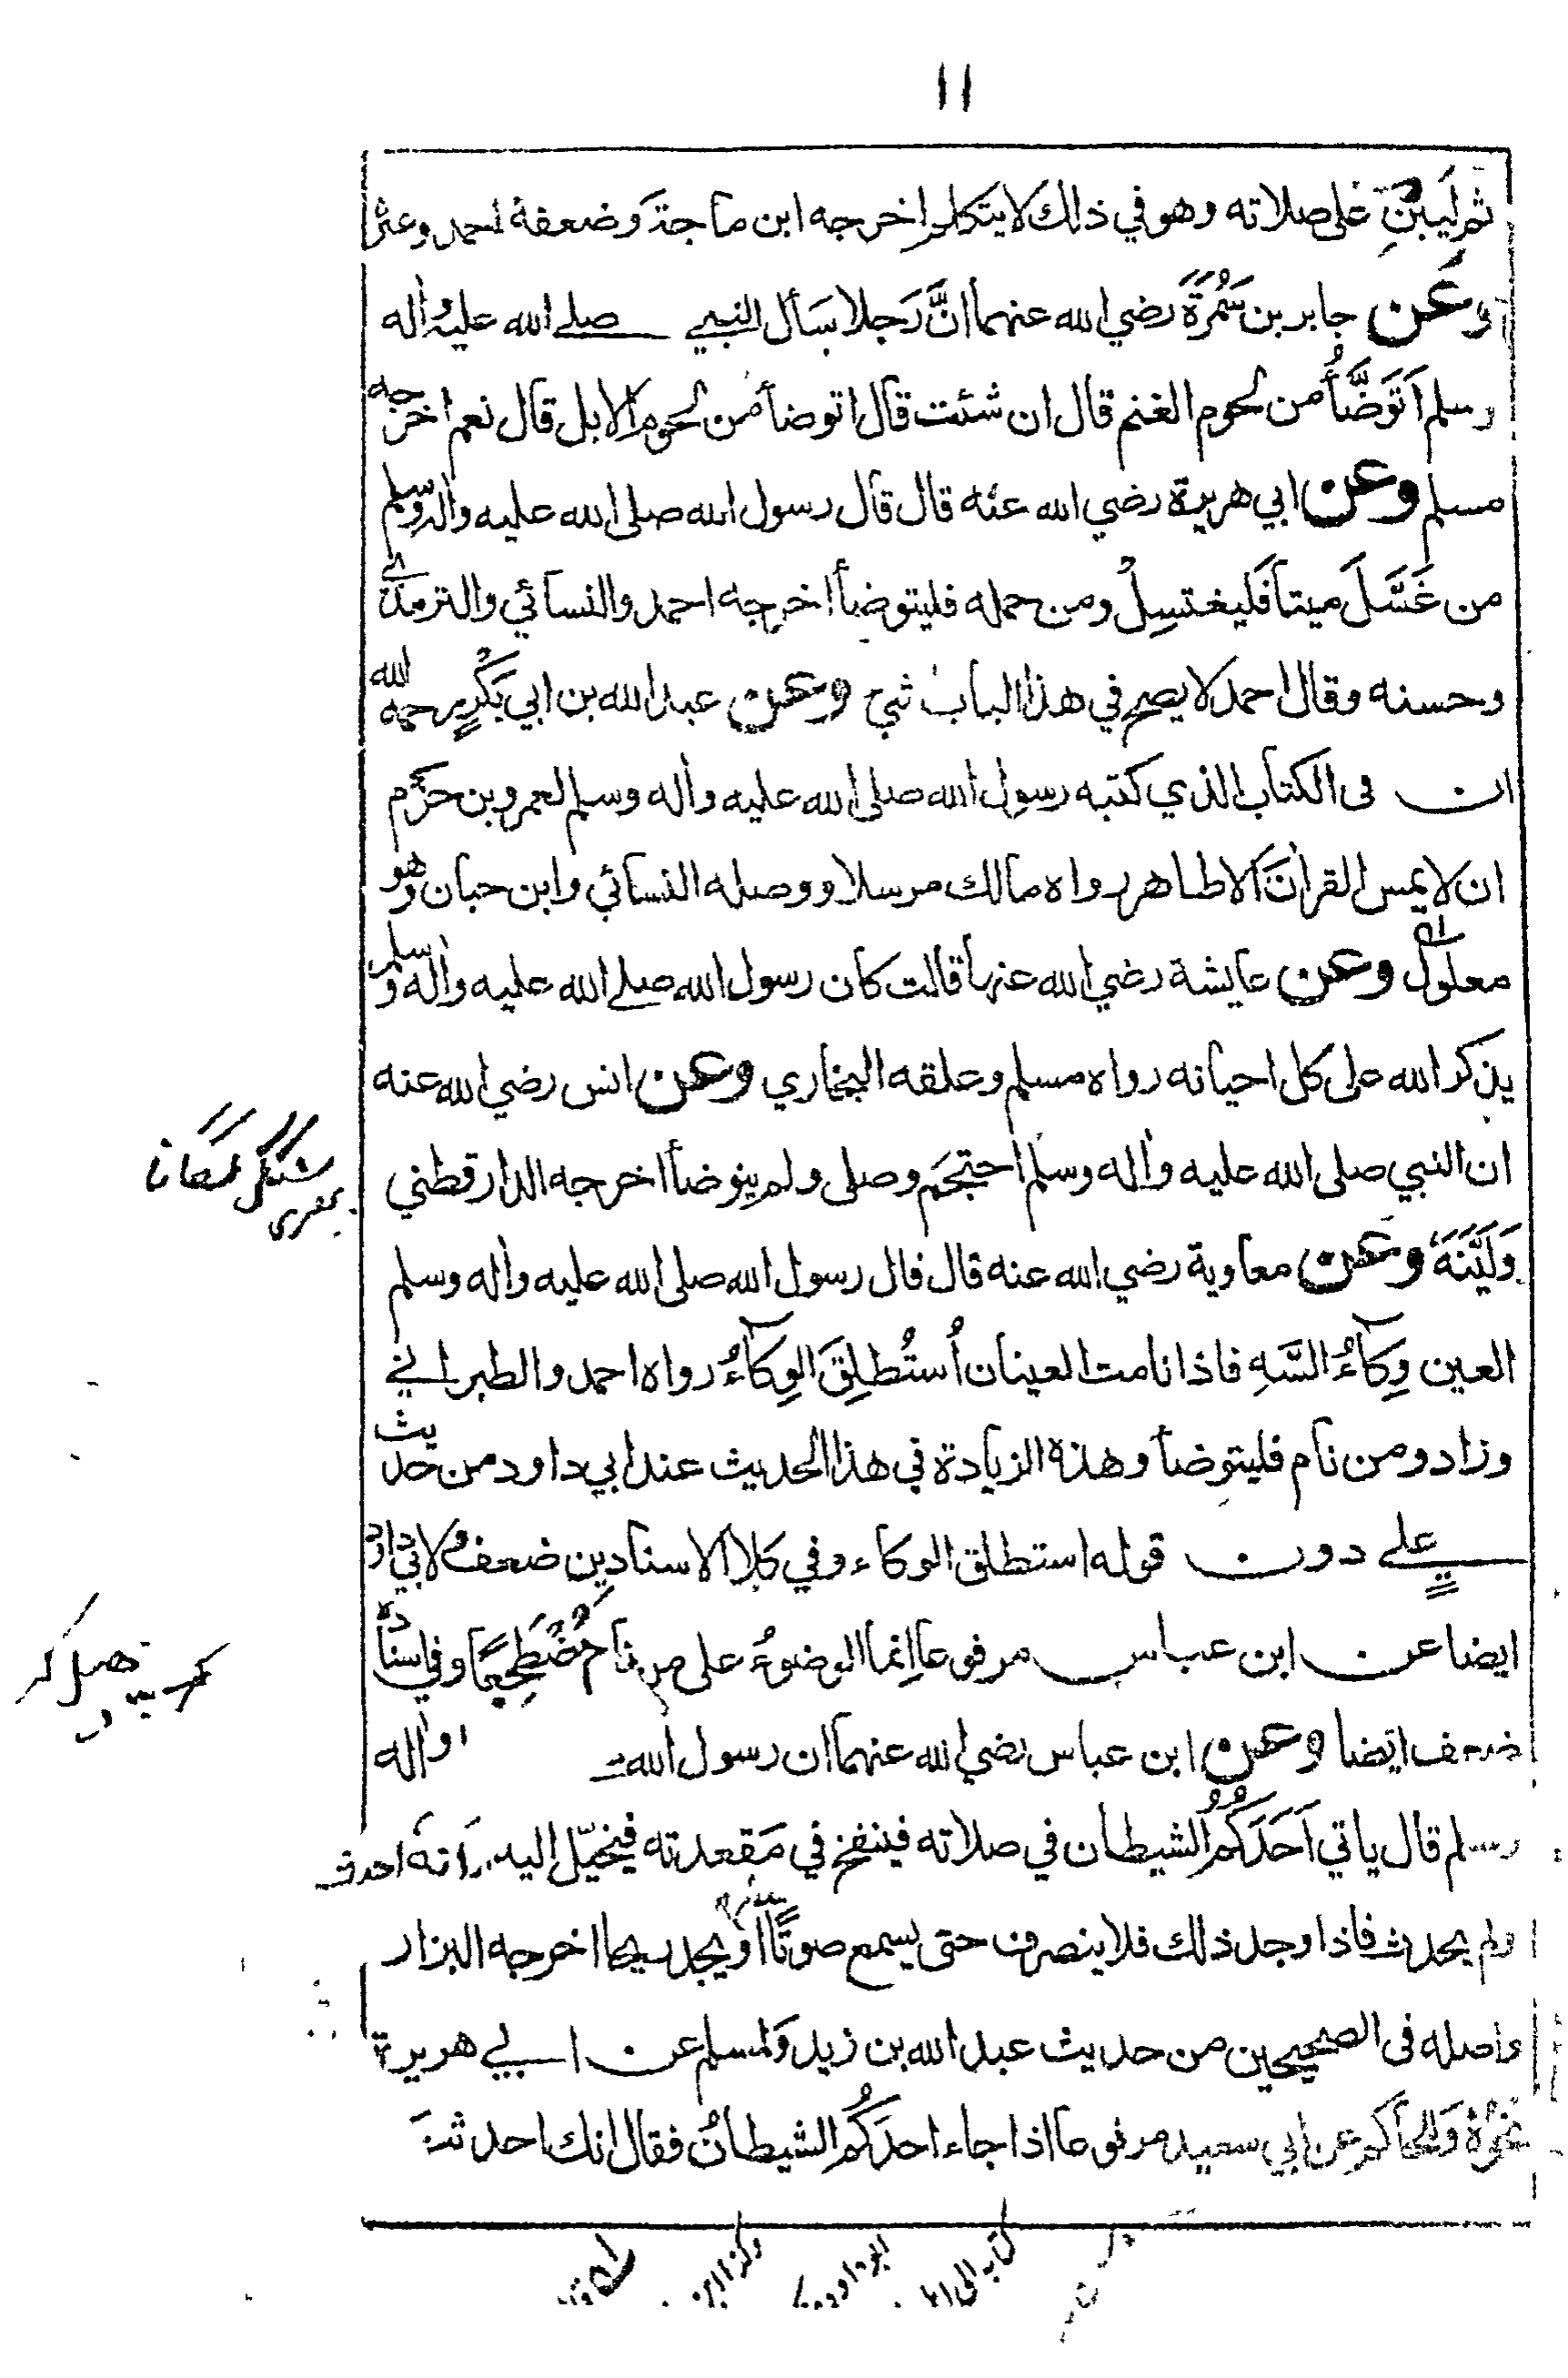 ١١
ثم ليبن على صلاته وهو في ذلك لا يتكلم اخرجه ابن ماجة وضعفه احمد وغيره
وعن جابر بن سَمُرَةَ رضي الله عنهما انَّ رَجلا سَأل النبي صلے الله عليه واٰله
وسلم اَتَوَضَّأُ من لحوم الغنم قال ان شئت قال اتوضأ من لحوم الابل قال نعم اخرجه
مسلم وعن ابي هريرة رضي الله عنه قال قال رسول الله صلى الله عليه واٰله وسلم
من غَسَّلَ ميتا فَليغتسِلْ ومن حمله فليتوضأ اخرجه احمد والنسائي والترمذي
وحسنه وقال احمد لا يصح في هذا الباب شيء وعن عبد الله بن ابي بَكْرٍ رحمه الله
ان فى الكتاب الذي كتبه رسول الله صلى الله عليه واٰله وسلم لعمرو بن حزم
ان لا يمس القراٰن الا طاهر رواه مالك مرسلا ووصله النسائي وابن حبان وهو
معلول وعن عايشة رضي الله عنها قالت كان رسول الله صلے الله عليه واٰله وسلم
يذكر الله على كل احيانه رواه مسلم وعلقه البخاري وعن انس رضي الله عنه
ان النبي صلى الله عليه واٰله وسلم احتجَم وصلى ولم يتوضأ اخرجه الدارقطني
وَلَيَّنَهُ وعن معاوية رضي الله عنه قال قال رسول الله صلى الله عليه واٰله وسلم
العين وِكآءُ السَّهِ فاذا نامت العينان اُستُطلِقَ الوِكآءُ رواه احمد والطبراني
وزاد ومن نام فليتوضأ وهذه الزيادة في هذا الحديث عند ابي داود من حديث
علي دون قوله استطلق الوكاء وفي كلا الاسنادين ضعف ولابي داود
ايضا عن ابن عباس مرفوعا اِنما الوضوءُ على من نام مُضْطَجِعًا وفي اسناده
ضعف ايضا وعن ابن عباس رضي الله عنهما ان رسول الله واٰله
وسلم قال ياتي اَحَدَكُمُ الشيطان في صلاته فينفخ في مَقعدته فيخيّل اليه اَنه احدث
ولم يحدث فاذا وجد ذلك فلا ينصرف حتى يسمع صوتًا او يجد ريحا اخرجه البزار
واصله فى الصحيحين من حديث عبد الله بن زيد وَلمسلم عن ابي هريرة
نحوُهُ وَللحاكم عن ابي سعيد مرفوعا اذا جاء احدَكُمُ الشيطانُ فقال انك احدثتَ